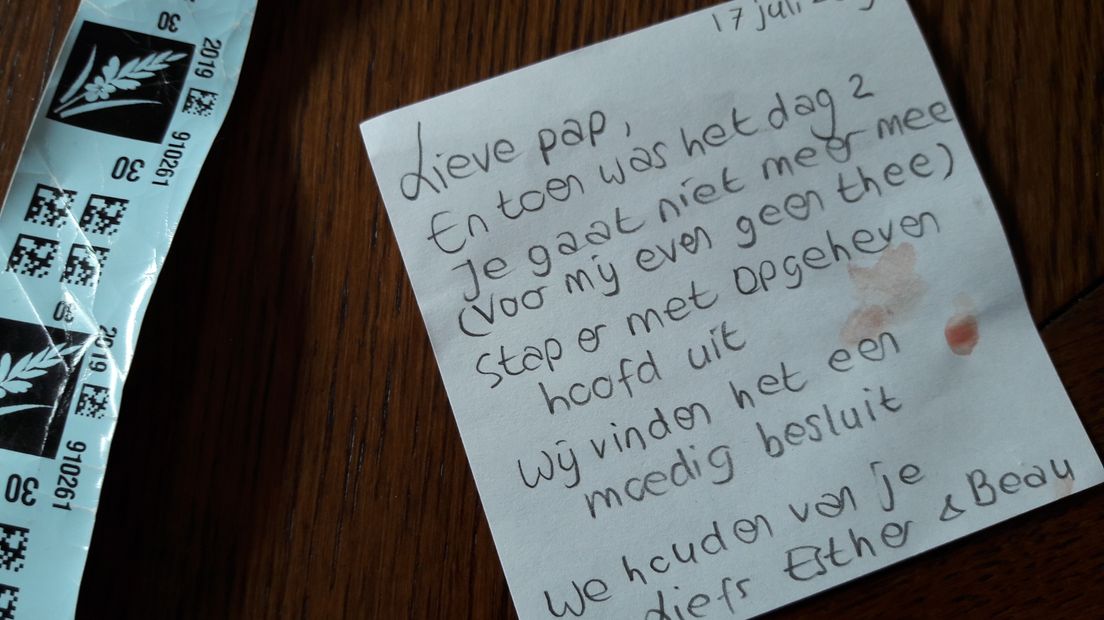 30
2019
910261
30
30
2019
910261
30
17 juli
Lieve pap,
En toen was het dag 2
je gaat niet meer mee
(voor mij even geen thee)
stap er met opgeheven
hoofd uit
wij vinden het een
moedig besluit
We houden van je
Liefs Esther & Beau